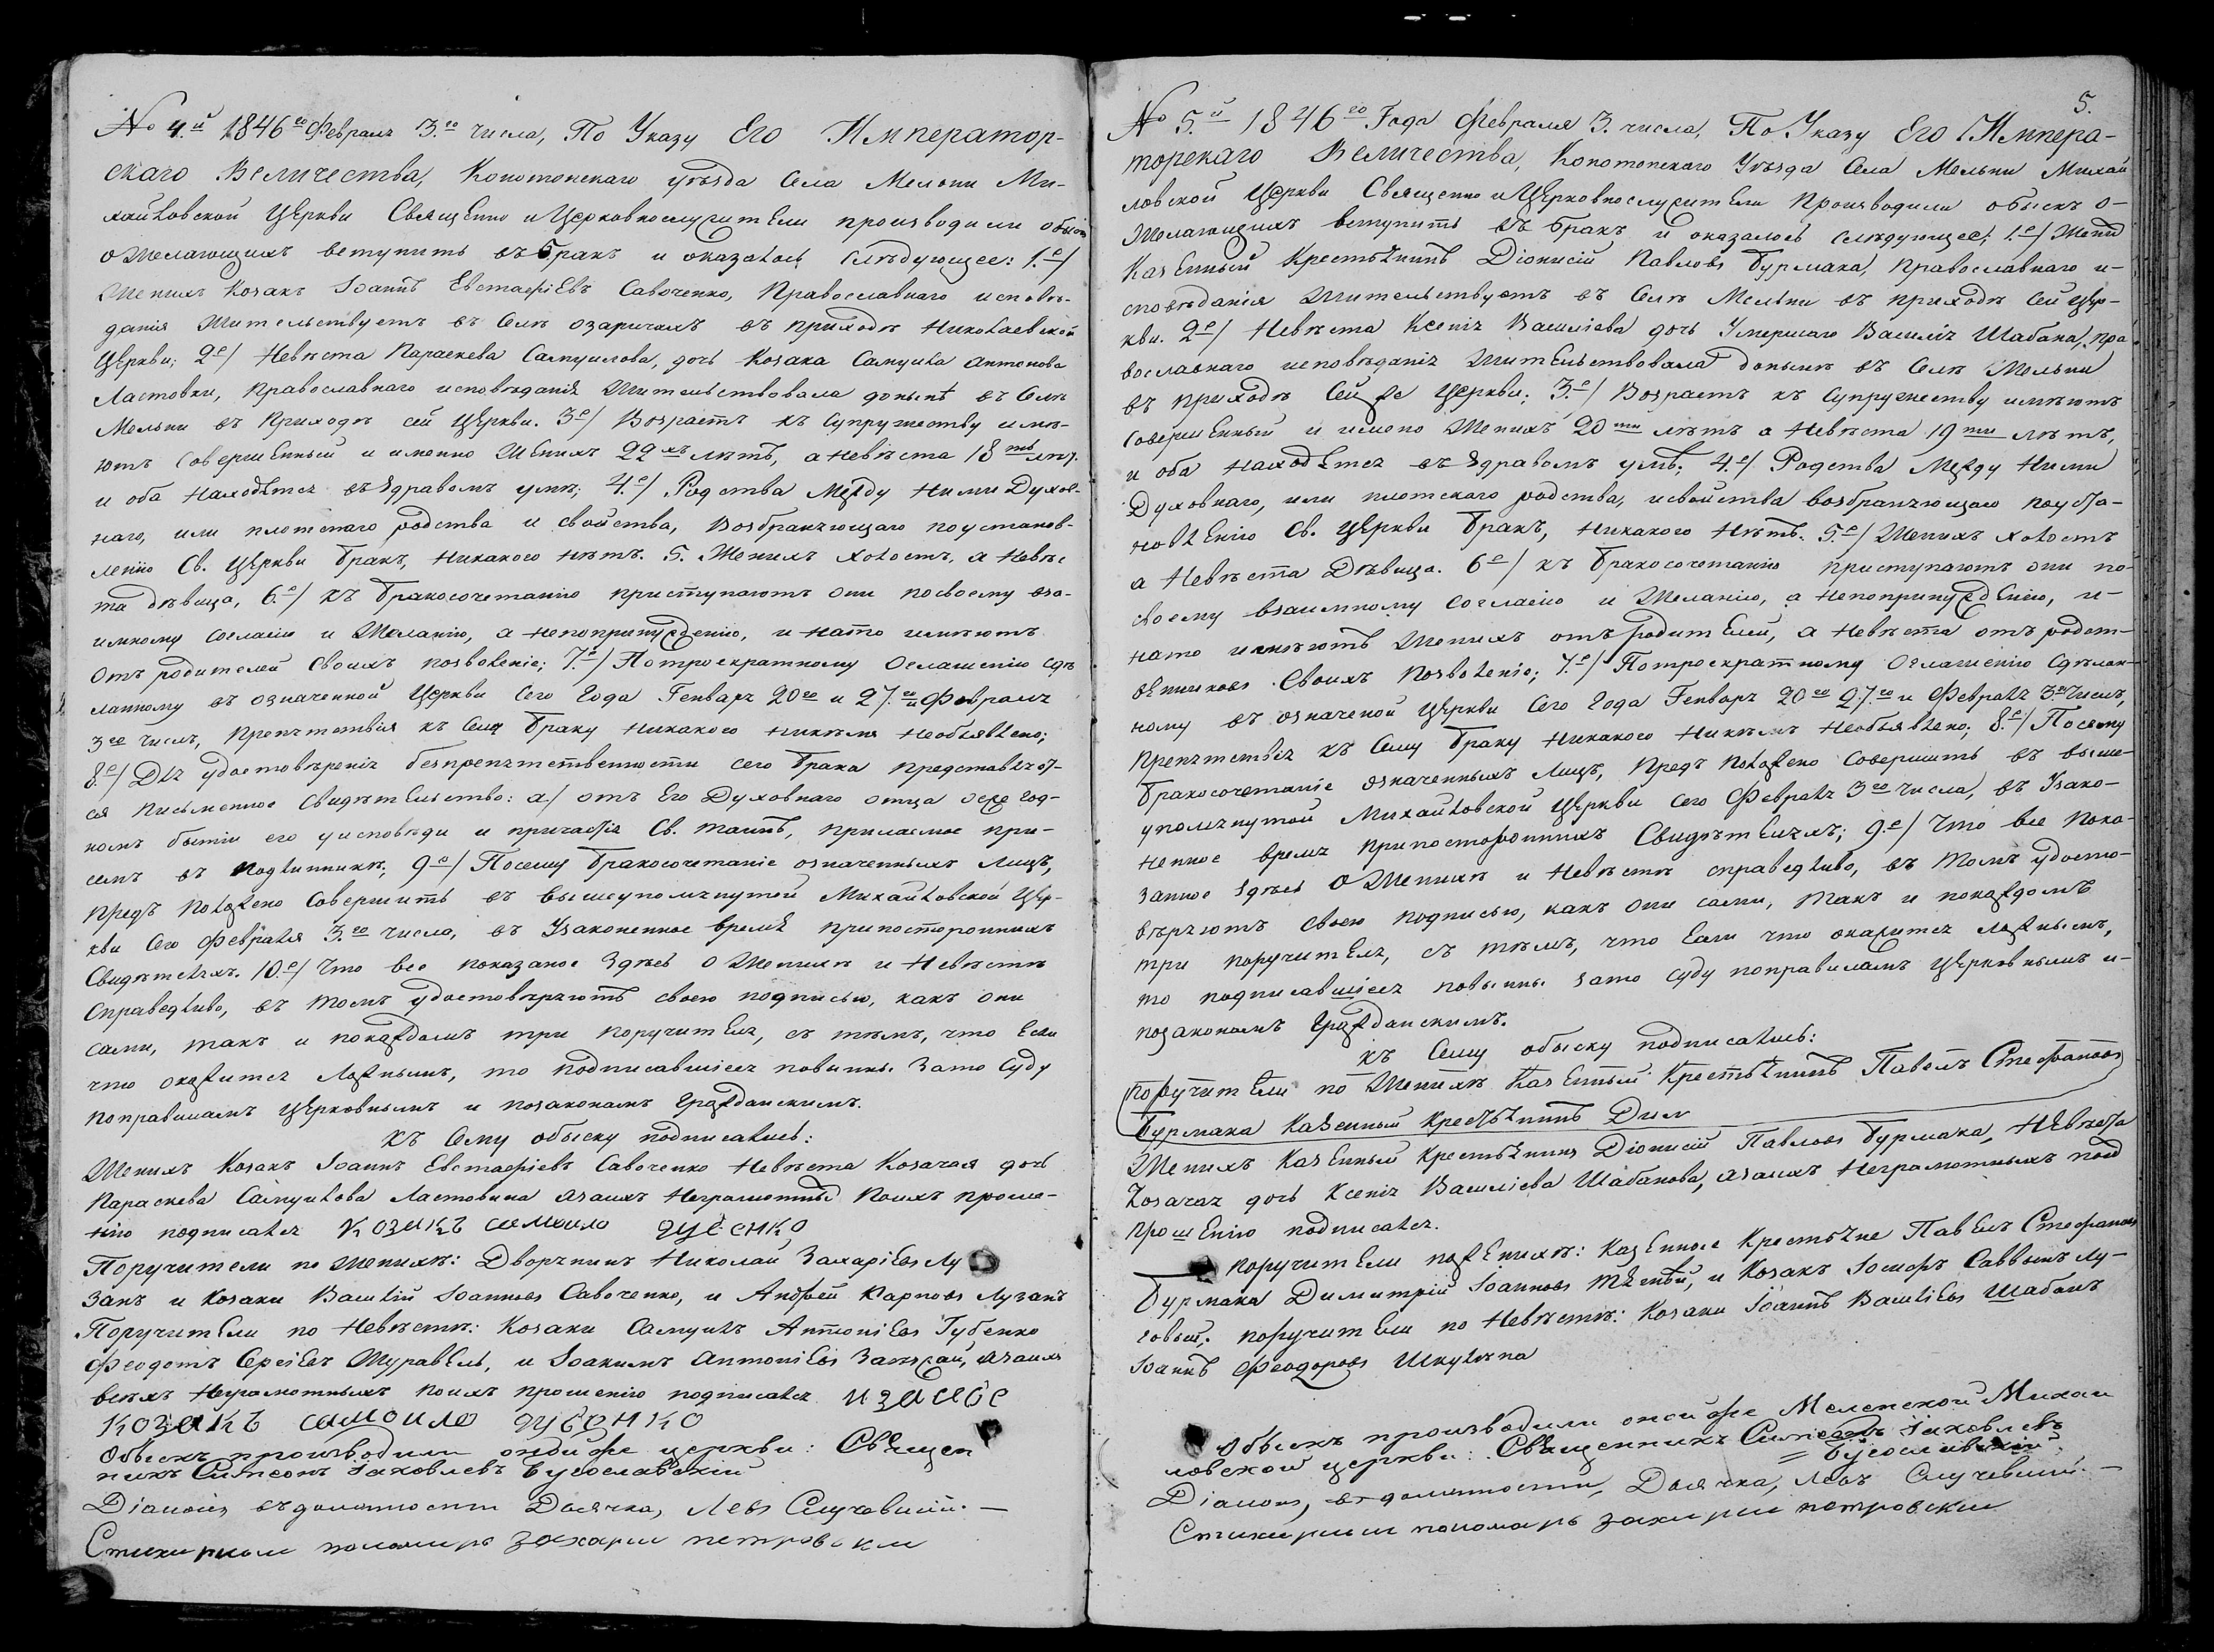 № 4.й 1846го Февраля 3.го числа, По Указу Его Император-
скаго Величества, Конотопскаго уѣзда Села Мельни Ми-
хайловской Церкви Священно и Церковнослужители производили обыскъ
о желающихъ вступить въ бракъ и оказалось слѣдующее: 1.е/
Женихъ Козакъ Іоаннъ Евстафіевъ Савоченко, Православнаго исповѣ-
данія Жительствуетъ въ Селѣ озаричахъ въ приходѣ Николаевской
Церкви; 2е/ Невѣста Параскева Самуилова, дочь Козака Самуила Антонова
Ластовки, Православнаго исповѣданія Жительствовала донынѣ въ Селѣ
Мельни въ Приходѣ сей Церкви. 3е/ Возрастъ къ Супружеству имѣ-
ютъ Совершенный и именно Женихъ 22хъ лѣтъ, а Невѣста 18ть лѣтъ
и оба Находятся въ здравомъ умѣ; 4.е/ Родства Между Ними Духов-
наго, или плотскаго родства и свойства, Возбраняющаго по установ-
ленію Св. Церкви бракъ, Никакого нѣтъ. 5. Женихъ Холостъ, а Невѣс
та дѣвица, 6.е/ Къ бракосочетанію приступаютъ они по своему вза-
имному согласію и Желанію, а не по принужденію, и на то имѣютъ
отъ родителей своихъ позволеніе; 7.е/ По троекратному Оглашенію сдѣ
ланному въ означенной Церкви Сего Года Генваря 20го и 27.го и Февраля
3го числъ, Препятствія къ Сему браку Никакого Никѣмъ Необъявлено;
8.е/ Для удостовѣренія безпрепятственности сего брака представляет-
ся Письменное Свидѣтельство: а/ отъ Его Духовнаго отца о еже год-
номъ бытіи его у исповѣди и причастія Св. таинъ, прилагаемое при-
семъ въ подлинникѣ; 9е/ Посему бракосочетаніе означенныхъ Лицъ,
предъ положено Совершить въ вышеупомянутой Михайловской Цер-
кви Сего Февраля 3.го числа, въ Узаконенное время при постороннихъ
Свидѣтеляхъ. 10.е/ Что все показаное Здѣсь о Женихѣ и Невѣстѣ
Справедливо, въ томъ удостовѣряютъ своею подписью, какъ они
сами, такъ и покаждомъ три поручителя, съ тѣмъ, что Если
что окажится Ложнымъ, то подписавшіеся повинны За то Суду
по правиламъ Церковнымъ и по законамъ Гражданскимъ.
Къ Сему обыску подписались:
Женихъ Козакъ Іоаннъ Евстафіевъ Савоченко Невѣста Козачая дочь
Параскева Самуилова Ластовкина а за ихъ Неграмотных по ихъ проше-
нію подписался козакъ самоило губенко
Поручители по женихѣ: Дворянинъ Николай Захаріевъ Лу
занъ и Козаки Василій Іоанновъ Савоченко, и Андрей Карповъ Лузанъ
Поручители по Невѣстѣ: Козаки Самуилъ Антоніевъ Губенко
Феодотъ Сергіевъ Журавель, и Іоакимъ Антоніевъ а за ихъ
всѣхъ Неграмотныхъ по ихъ прошенію подписался и за себе
козакъ самоило губенко
Обыскъ производили онойже церкви: Священ
никъ Симеонъ Іаковлевъ Бугославскій
Діаконъ въ должности Дьячка, Левъ Случевский. —
Стихарный пономаръ захарій петровски
5.
№ 5.й 1846го Года Февраля 3. числа, По Указу Его Импера-
торскаго Величества, Конотопскаго Уѣзда Села Мельни Михай
ловской Церкви Священно и Церковнослужители Производили обыскъ о-
Желающихъ вступить въ бракъ и оказалось слѣдующее; 1.е/ Женихъ
Казенный Крестьянинъ Діонисій Павловъ Бурмака, Православнаго и-
сповѣданія Жительствуетъ въ Селѣ Мельни въ приходѣ сей Цер-
кви. 2е/ Невѣста Ксенія Василіева дочь Умершаго Василія Шабана, пра
вославнаго исповѣданія Жительствовала донынѣ въ Селѣ Мельни
въ приходѣ Сей же Церкви; 3.е/ Возрастъ къ Супружеству имѣютъ
Совершенный и имено Женихъ 20ти лѣтъ а Невѣста 19ти лѣтъ,
и оба находятся въ здравомъ умѣ; 4.е/ Родства Между Ними
Духовнаго, или плотскаго родства, и свойства возбраняющаго по уста-
новленію Св. Церкви бракъ, Никакого Нѣтъ. 5.е/ Женихъ холостъ
а Невѣста Дѣвица. 6е/ къ бракосочетанію приступаютъ они по-
своему взаимному Согласію и Желанію, а не по принужденію, и-
на то имѣютъ Женихъ отъ родителей, а Невѣста отъ родст-
венниковъ Своихъ Позволеніе; 7.е/ По троекратному Оглашенію Сдѣлан-
ному въ означеной Церкви Сего Года Генваря 20го 27.го и Февраля 3го Числъ,
Препятствія къ Сему браку Никакого Никѣмъ Необъявлено; 8е/ Посему
бракосочетаніе означенныхъ Лицъ, Предъ положено Совершить въ выше-
упомянутой Михайловской Церкви Сего Февраля 3го Числа, въ Узако-
ненное время при постороннихъ Свидѣтеляхъ; 9.е/ Что все пока-
занное Здѣсь о Женихѣ и Невѣстѣ справедливо, въ томъ удосто-
вѣряютъ Своею подписью, какъ они сами, такъ и покаждомъ
три поручителя, съ тѣмъ, что Если что окажится ложнымъ,
то подписавшіеся повинны за то Суду по правиламъ Церковнымъ и-
по законамъ Гражданскимъ.
Къ Сему обыску подписались:
поручители по Женихѣ Казенный Крестьянинъ Павелъ Стефановъ
Бурмака Казенный Крестьянинъ Дим
Женихъ Казенный Крестьянинъ Діонисій Павловъ Бурмака, Невѣста
Козачая дочь Ксенія Василіева Шабанова, а за ихъ Неграмотныхъ по ихъ
прошенію подписался.
Поручители по Женихѣ: Казенные Крестьяне Павелъ Стефановъ
Бурмака Димитрій Іоанновъ и Козакъ Іосифъ Саввинъ Лу-
говый; поручители по Невѣстѣ: Козаки Іоаннъ Василіевъ Шабанъ
Іоаннъ Феодоровъ
Обыскъ производили онойже Меленской Михай
ловской церкви: Священникъ Симеонъ Іаковлевъ
= Бугославскій.
Діаконъ, въ должности, Дьячка, Левъ Случевский. —
Стихарный пономаръ захарій петровски